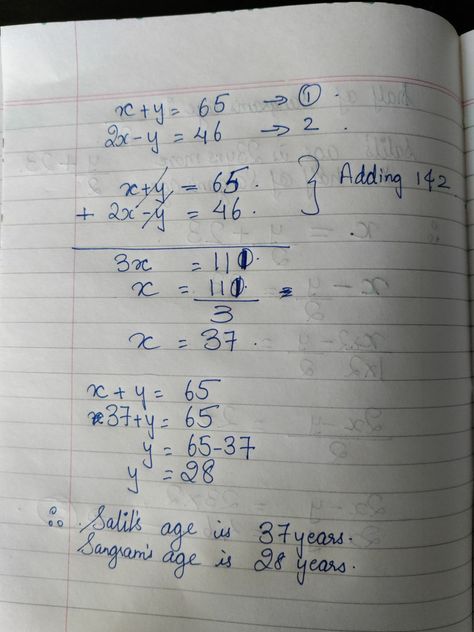 x+y = 65 → ①
2x-y = 46 → 2
x+y = 65.
+ 2x-y = 46. } Adding 1&2
3x = 111
x = 111/3 =
x = 37.
x + y = 65
37+y = 65
y = 65-37
y = 28
∴ Salil's age is 37 years.
Sangram's age is 28 years.